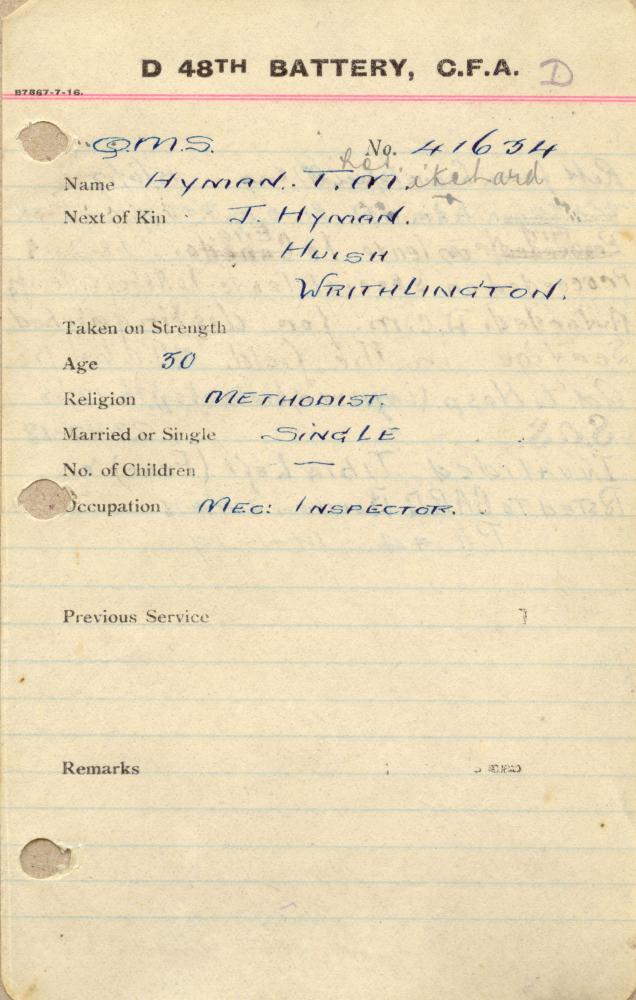 D 48TH BATTERY, C.F.A. D
B7867-7-16.
Q.M.S. No. 41634
Name HYMAN. T. M.
Next of Kin J. HYMAN.
HUISH
WRITHLINGTON.
Taken on Strength
Age 30
Religion METHODIST.
Married or Single SINGLE
No. of Children —
Occupation MEC: INSPECTOR.
Previous Service
Remarks